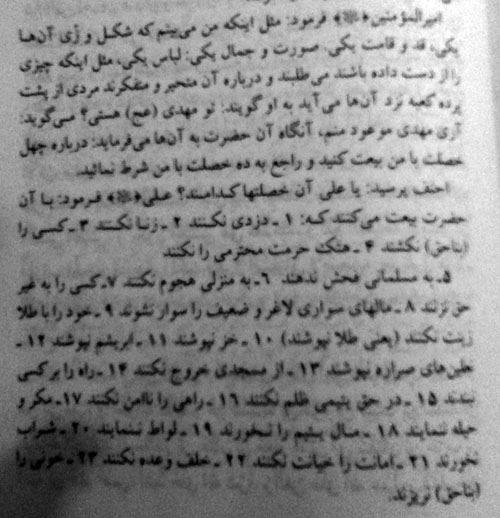 امیرالمؤمنین﴿﴾ فرمود: مثل اینکه من می‌بینم که شکل و زی آن‌ها
یکی، قد و قامت یکی، صورت و جمال یکی، لباس یکی، مثل اینکه چیزی
را از دست داده باشند می‌طلبند و درباره آن متحیر و متفکرند مردی از پشت
پرده کعبه نزد آن‌ها می‌آید به او گویند: تو مهدی (عج) هستی؟ می‌گوید:
آری مهدی موعود منم، آنگاه آن حضرت به آن‌ها می‌فرماید: درباره چهل
خصلت با من بیعت کنید و راجع به ده خصلت با من شرط نمائید.
احنف پرسید: یا علی آن خصلتها کدامند؟ علی﴿﴾ فرمود: با آن
حضرت بیعت می‌کنند که: ۱ ـ دزدی نکنند ۲ ـ زنا نکنند ۳ ـ کسی را
(بناحق) نکشند ۴ ـ هتک حرمت محترمی را نکنند
۵ـ به مسلمانی فحش ندهند ۶ـ به منزلی هجوم نکنند ۷ـ کسی را به غیر
حق نزنند ۸ ـ مالهای سواری لاغر و ضعیف را سوار نشوند ۹ ـ خود را با طلا
زینت نکنند (یعنی طلا نپوشند) ۱۰ ـ خز نپوشند ۱۱ ـ ابریشم نپوشند ۱۲ ـ
صراره نپوشند ۱۳ ـ از مسجدی خروج نکنند ۱۴ ـ راه را بر کسی
نبندند ۱۵ ـ در حق یتیمی ظلم نکنند ۱۶ ـ راهی را ناامن نکنند ۱۷ـ مکر و
حیله ننمایند ۱۸ ـ مال یتیم را نخورند ۱۹ ـ لواط ننمایند ۲۰ ـ شراب
نخورند ۲۱ ـ امانت را خیانت نکنند ۲۲ ـ خلف وعده نکنند ۲۳ ـ خونی را
(بناحق) نریزند.